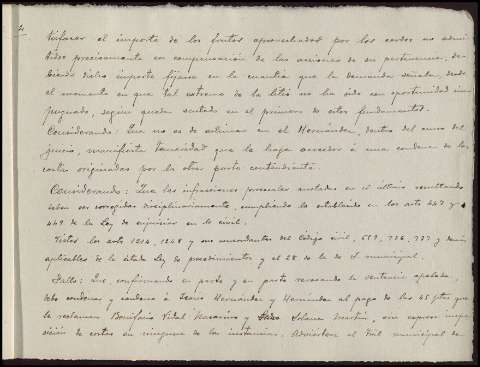 tisfacer el importe de los frutos aprovechados por los cerdos no admi-
tidos precisamente en compensación de las acciones de su pertenencia, de-
biendo dicho importe fijarse en la cuantía que la demanda señala, desde
el momento en que tal extremo de la litis no ha sido con oportunidad im-
pugnado, según queda sentado en el primero de estos fundamentos.
Considerando: Que no es de estimar en el Hernández, dentro del curso del
juicio, manifiesta temeridad que le haga acreedor á una condena de las
costas originadas por la otra parte contendiente.
Considerando: Que las infracciones procesales anotadas en el último resultando
deben ser corregidas disciplinariamente, cumpliendo lo establecido en los arts 447 y
449 de la Ley de enjuiciar en lo civil.
Vistos los arts 1214, 1248 y sus concordantes del Código civil, 359, 736, 737 y demás
aplicables de la citada Ley de procedimientos y el 28 de la de J. municipal.
Fallo: Que, confirmando en parte y en parte revocando la sentencia apelada,
debo condenar y condeno á Hernández y Hernández al pago de las 45 ptas que
le reclaman Bonifacio Vidal Navarino y Solana Martín, sin expresa impo-
sición de costas en ninguna de las instancias. Adviértase al Tral municipal de